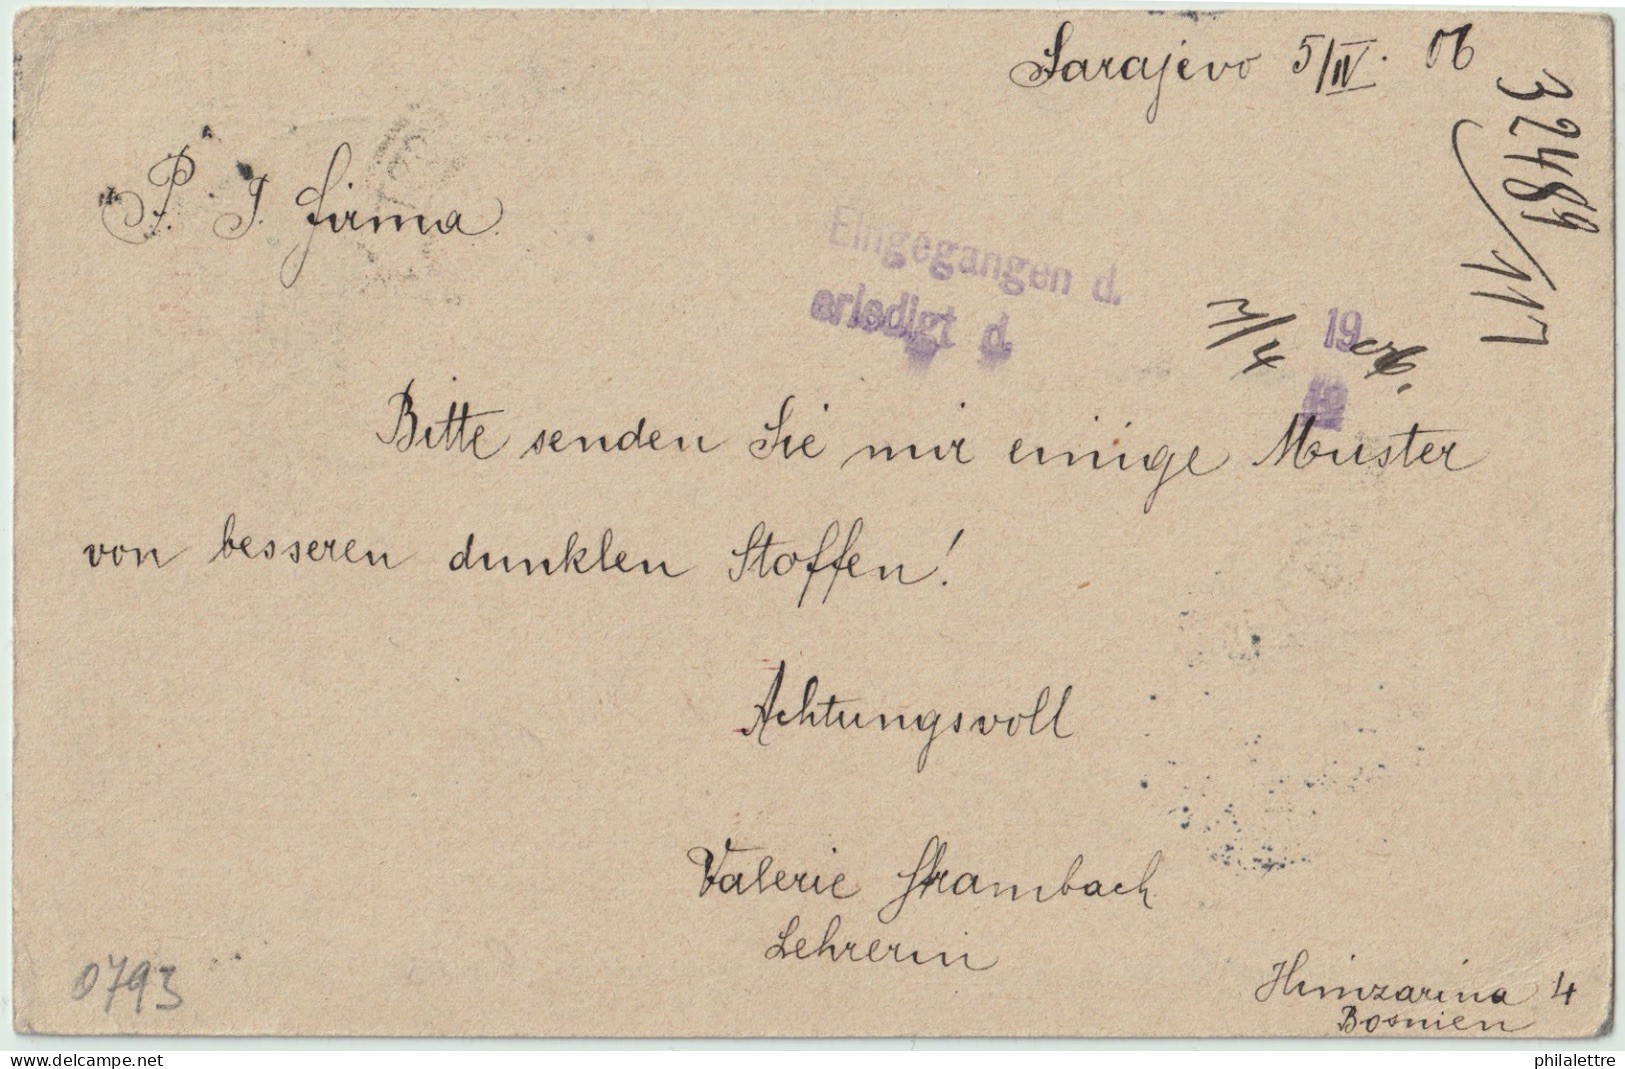 Sarajevo 5/IV. 06
32489/117
P. T. Firma
Eingegangen d.
erledigt d.
7/4 1906.
Bitte senden Sie mir einige Muster
von besseren dunklen Stoffen!
Achtungsvoll
Valerie Strambach
Lehrerin
Himzarina 4
Bosnien
0793
delcampe.net
philalettre